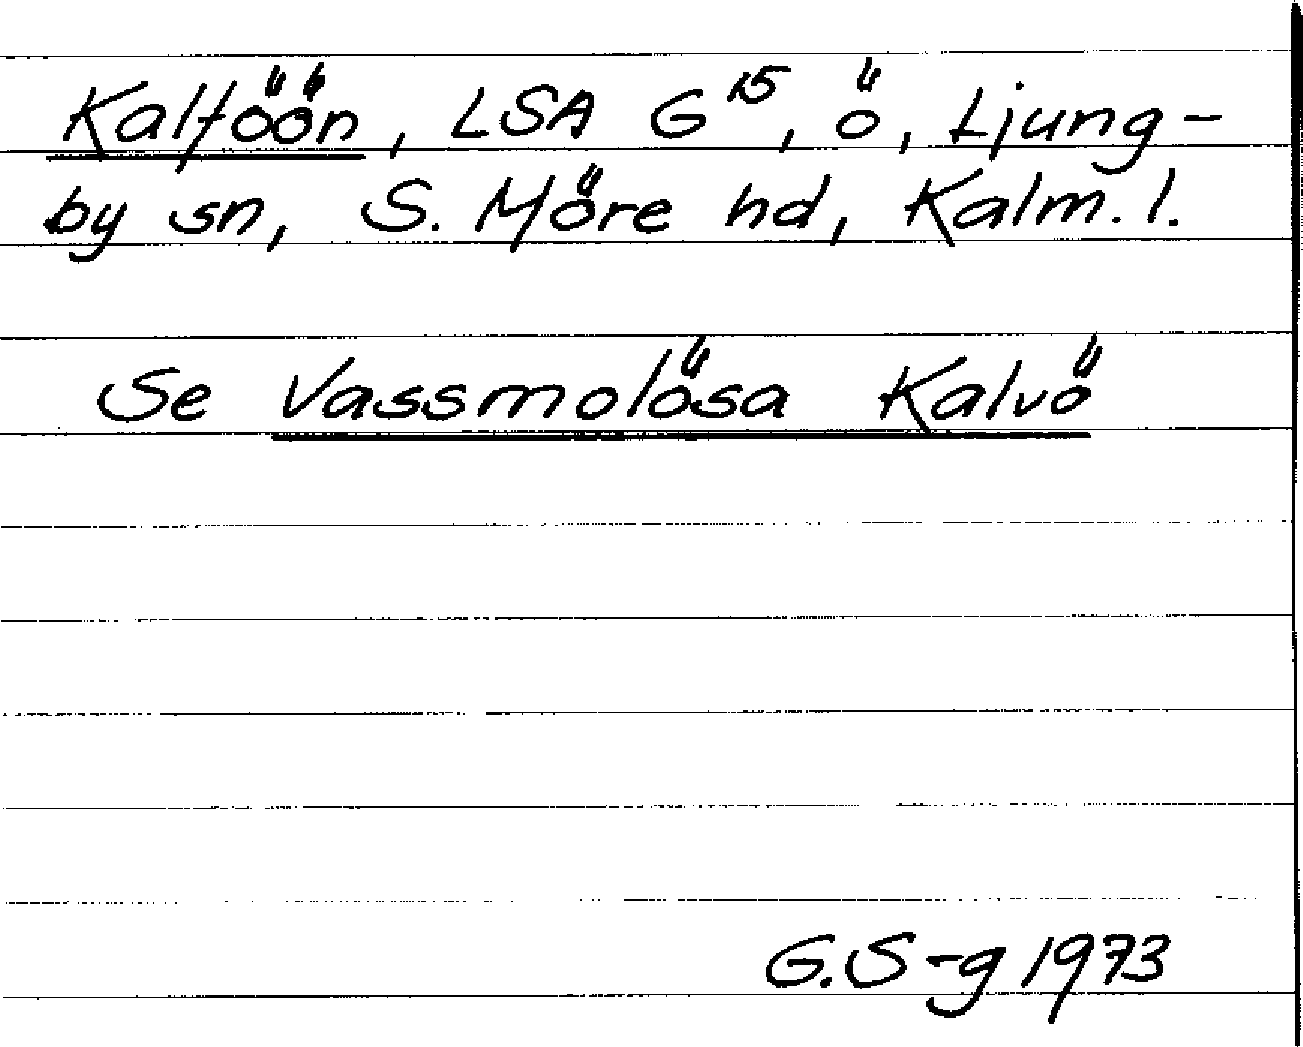 Kalföön, LSA G¹⁵, ö, Ljung-
by sn, S. Möre hd, Kalm. l.
Se Vassmolösa Kalvö
G.S-g 1973